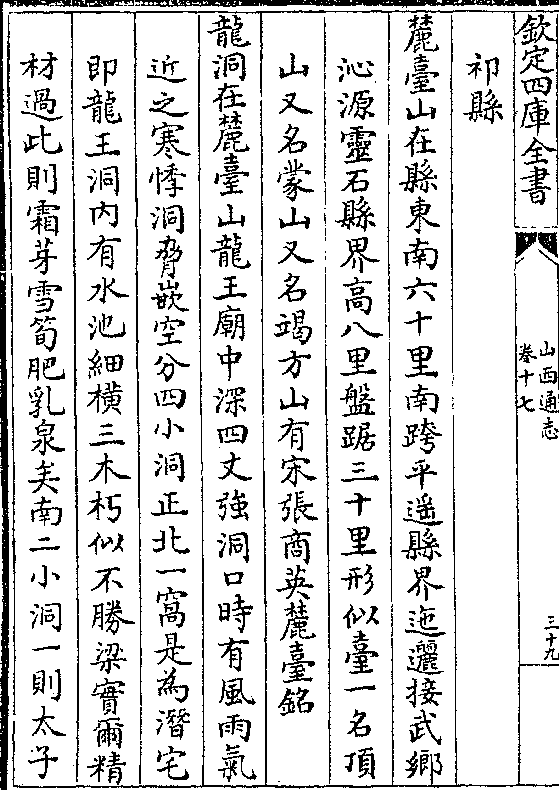 欽定四庫全書
山西通志
卷十七
三十九
祁縣
麓臺山在縣東南六十里南跨平遥縣界迤邐接武鄉
沁源靈石縣界髙八里盤踞三十里形似臺一名頂
山又名蒙山又名竭方山有宋張商英麓臺銘
龍洞在麓臺山龍王廟中深四丈強洞口時有風雨氣
近之寒悸洞脅嵌空分四小洞正北一窩是為潛宅
即龍王洞内有水池細橫三木朽似不勝梁實爾精
材過此則霜芽雪筍肥乳泉矣南二小洞一則太子